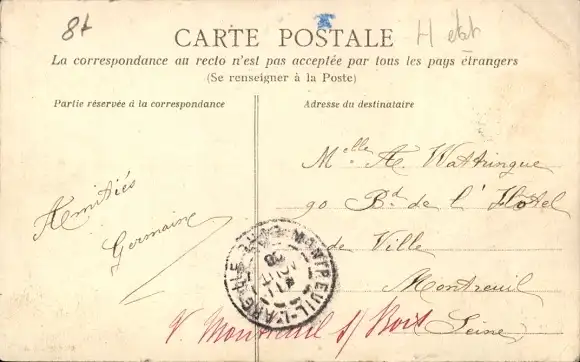 8t
H etat
CARTE POSTALE
La correspondance au recto n'est pas acceptée par tous les pays étrangers
(Se renseigner à la Poste)
Partie réservée à la correspondance
Adresse du destinataire
Amitiés
Germaine
Melle A. Wattringue
90 Bd de l'Hotel
de Ville
Montreuil
Seine
V. Montreuil s/ Bois
MONTREUIL-L'ARGILLE